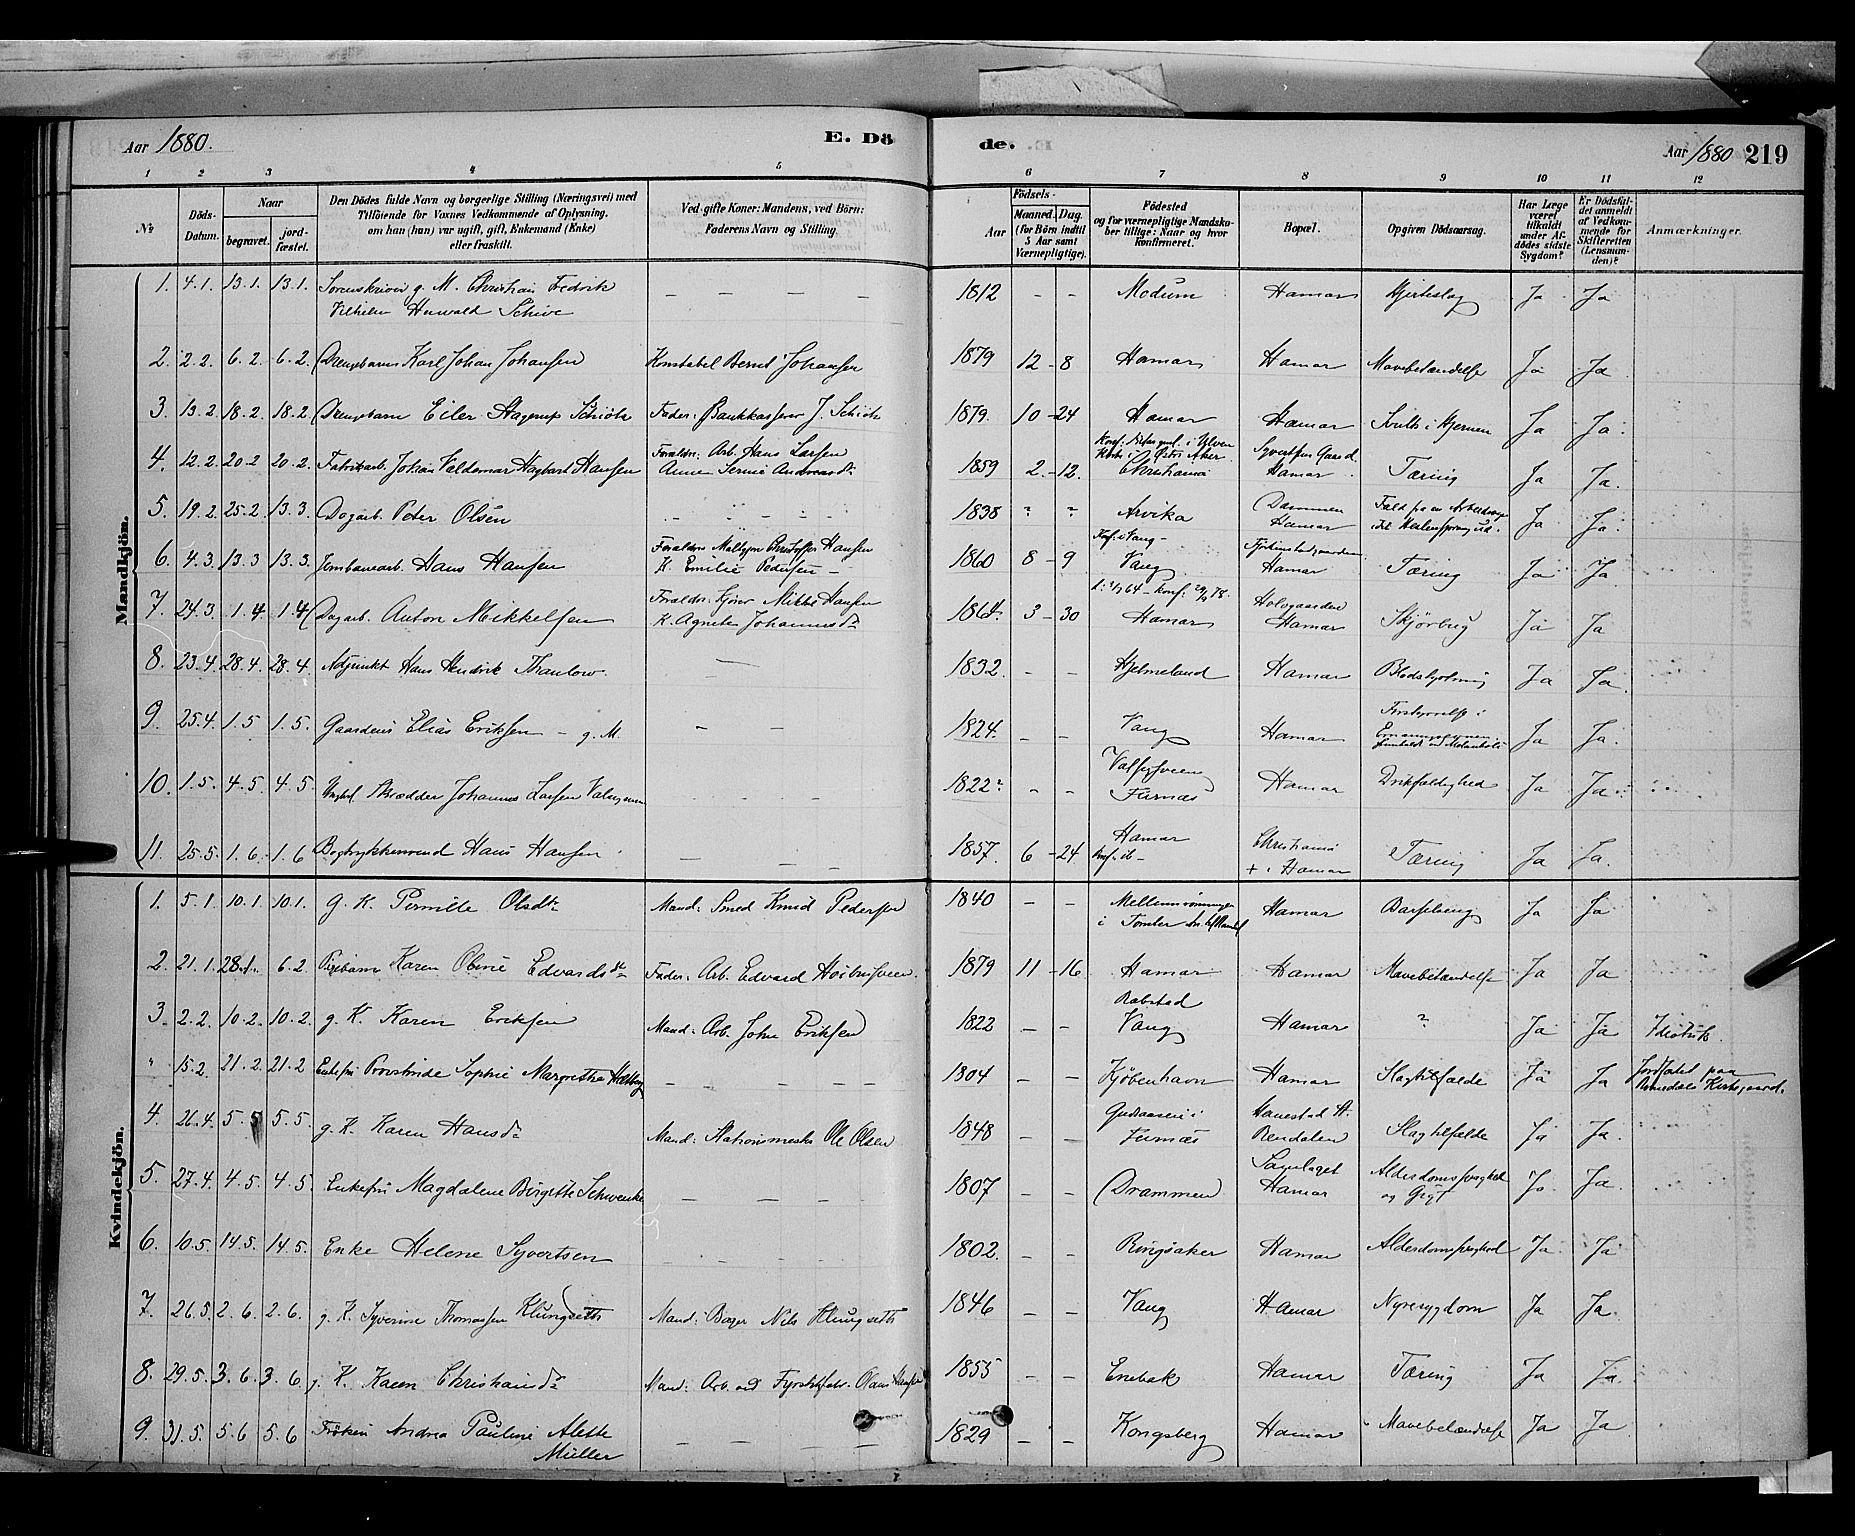 Aar 1880.
E. Dö
de.
Aar 1880 219
1 2 3 4 5 6 7 8 9 10 11 12
No
Döds-Datum.
Naar
begravet.
jord-fæstet.
Den Dödes fulde Navn og borgerlige Stilling (Næringsvei) med
Tilföiende for Voxnes Vedkommende af Oplysning,
om han (hun) var ugift, gift, Enkemand (Enke)
eller fraskilt.
Ved gifte Koner: Mandens, ved Börn:
Faderens Navn og Stilling.
Födsels-
Aar
Maaned. Dag.
(for Börn indtil
5 Aar samt
Værnepligtige).
Födested
og for værnepligtige Mandska-
ber tillige: Naar og hvor
konfirmeret.
Bopæl.
Opgiven Dödsaarsag.
Har Læge
været
tilkaldt
under Af-
dödes sidste
Sygdom?
Er Dödsfal-
det anmeldt
af Vedkom-
mende for
Skifteretten
(Lensman-
den)?
Anmærkninger.
Mandkjön.
1. 4.1. 13.1. 13.1. Sorenskriver g. M. Christian Fedrik
Vilhelm Schive — — — — 1812 — — Modum Hamar Hjerteslag Ja Ja
2. 2.2. 6.2. 6.2. Drengebarn Karl Johan Johansen Konstabel Bernt Johansen 1879 12 - 8 Hamar Hamar Mavebetændelse Ja Ja
3. 13.2. 18.2. 18.2. Drengebarn Eiler Hagerup Schiötz Fader: Bankkasserer J. Schiötz 1879. 10 - 24 Hamar Hamar i Hjernen Ja Ja.
4. 12.2. 20.2 20.2. Fabrikarb. Johan Valdemar Hagbart Hansen Foreldr: Arb. Hans Larsen
Anne 1859 2 - 12. Christiania Hamar Tæring Ja Ja.
5. 19.2. 25.2. 13.3. Dagarb. Peter Olsen 1838 ? ? Arvika Dammen
Hamar Fald fra en Ja Ja.
6. 4.3. 13.3 13.3. Jernbanearb. Hans Hansen Foreldre Christoffer Hansen
K. Emilie Pedersen 1860 8 - 9 Konf. i Vang -
Vang Hamar Tæring Ja Ja
7. 24.3. 1.4 1.4 Dagarb. Anton Mikkelsen Foreldr. Hansen
K. Agnete Johannesdr 1864. 3 - 30 Hamar Hamar Skjörbug Ja Ja
8. 23.4. 28.4. 28.4. Adjunkt Hans Hendrik Thaulow. — 1832. — — Hjelmeland Hamar Ja Ja.
9. 25.4. 1.5 1.5. Gaardeier Elias Eriksen - g. M. — — 1824. — — Vang Hamar Forstyrrelse i Ja Ja.
10. 1.5. 4.5. 4.5. Skrædder Johannes Larsen 1822? — — Furnæs Hamar Drikfældighed Ja Ja
11. 25.5. 1.6. 1.6 Bogtrykkersvend Hans Hansen — — 1857. 6 - 24 Hamar
Konf. ib - Christiania
+ i Hamar Tæring Ja Ja.
Kvindekjön.
1. 5.1. 10.1. 10.1. g. K. Pernille Olsdr Mand: Smed Knud Pedersen 1840 — — i Hamar Barselseng Ja Ja
2. 21.1. 28.1. 6.2. Pigebarn Karen Oline Edvardsdr Fader: Arb. Edvard 1879 11 - 16. Hamar Hamar Mavebetændelse Ja Ja
3. 2.2. 10.2. 10.2. g. K. Karen Eriksen Mand: Arb. John Eriksen 1822 — — Vang Hamar ? Ja Ja Idiotisk.
" 15.2. 21.2. 21.2 Enkefru Provstinde Sophie Margrethe — — — — 1804 — — Kjöbenhavn Hamar Slagtilfælde Ja Ja Jordfæstet paa
Romedals Kirkegaard.
4. 26.4. 5.5 5.5. g. K. Karen Hansdr Mand: Stationsmester Ole Olsen 1848 — — Furnæs Hanestad St.
Rendalen Slagtilfælde Ja Ja.
5. 27.4. 4.5. 4.5. Enkefru Magdalene Birgitte Schwenke — — — — 1807 — — Drammen Hamar Alderdomssvaghed
og Gigt Ja. Ja
6. 10.5. 14.5. 14.5. Enke Helene Syvertsen 1802. — — Ringsaker Hamar Alderdomssvaghed Ja. Ja
7. 26.5 2.6. 2.6. g. K. Syverine Thomassen Klungseth Mand: Borger Nils Klungseth 1846 — — Vang Hamar Nyresygdom Ja Ja.
8. 29.5. 3.6. 3.6 g. K. Karen Christiansdr Mand: Arb. ved Fyrstikfabr. Olaus Hansen 1855 — — Enebak Hamar Tæring Ja Ja.
9. 31.5. 5.6 5.6 Fröken Andrea Pauline Alette
Müller — — — — 1829 — — Kongsberg Hamar Mavebetændelse Ja Ja